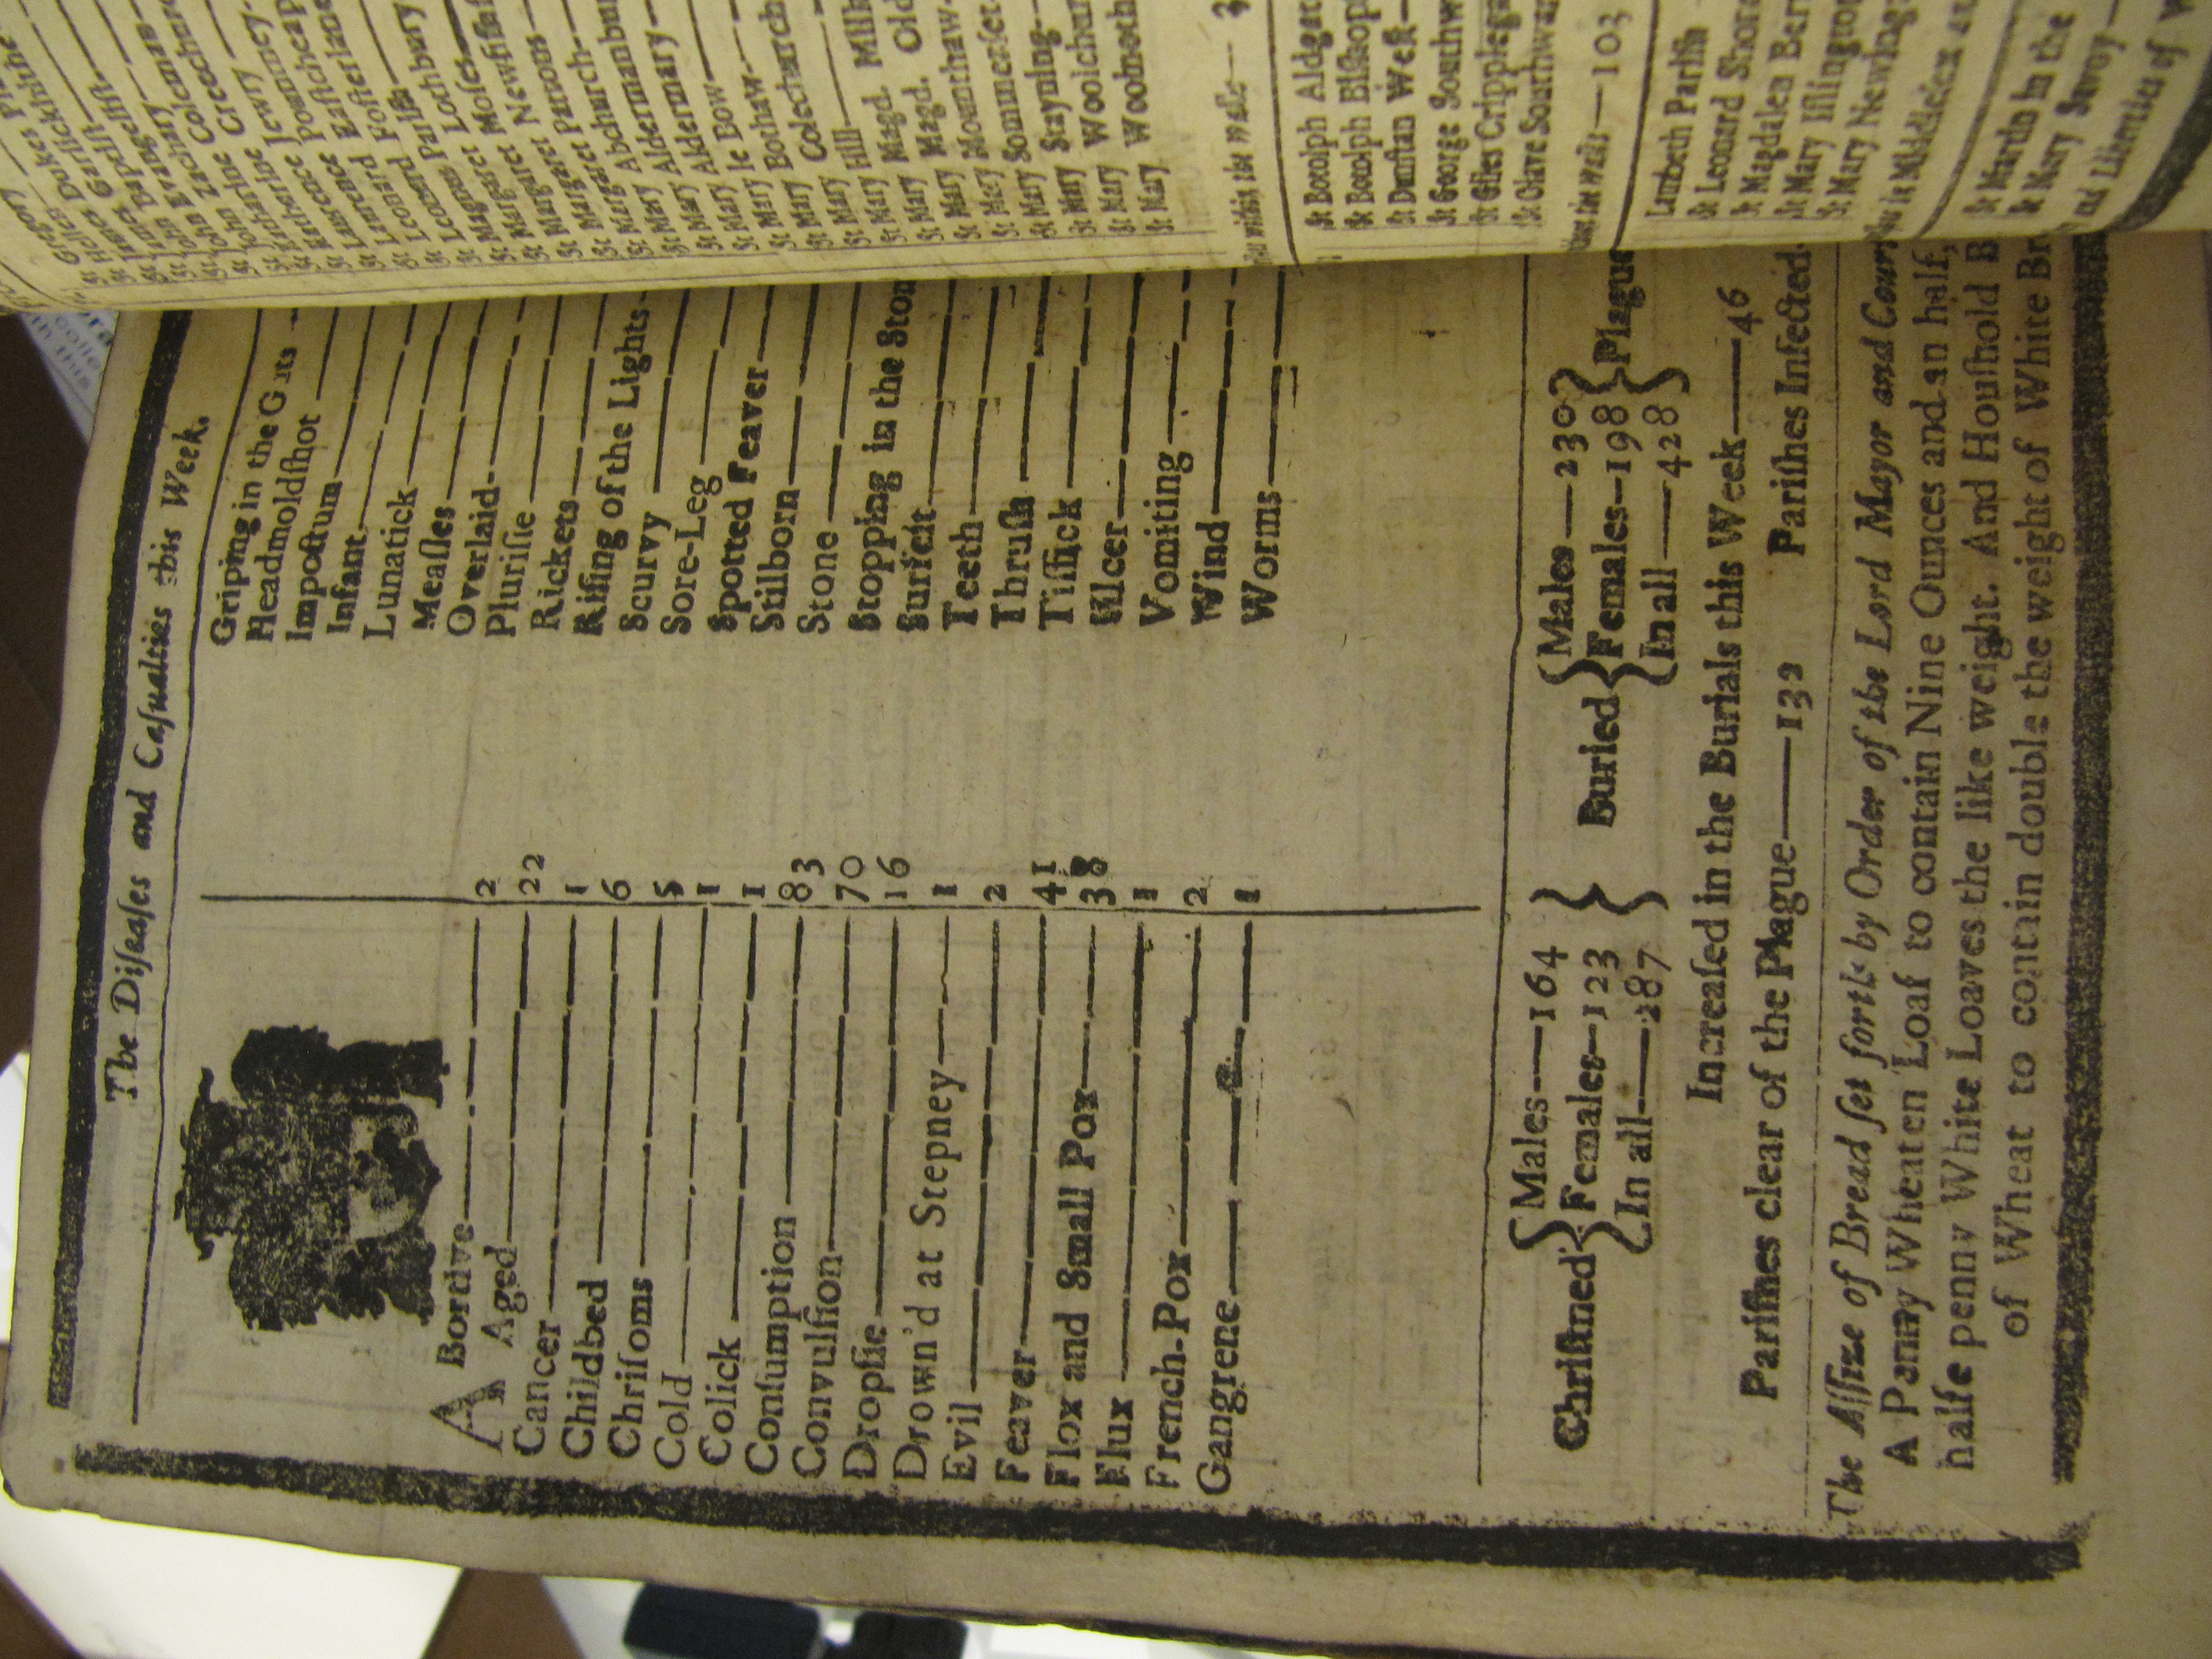 The Diſeaſes and Caſualties this Week.
ABortive 2
Aged 22
Cancer 1
Childbed 6
Chriſoms 5
Cold 1
Colick 1
Conſumption 83
Convulſion 70
Dropſie 16
Drown'd at Stepney 1
Evil 2
Feaver 41
Flox and Small Pox 38
Flux 1
French-Pox 2
Gangrene 1
Griping in the Guts
Headmoldſhot
Impoſtum
Infant
Lunatick
Meaſles
Overlaid
Pluriſie
Rickets
Riſing of the Lights
Scurvy
Sore-Leg
Spotted Feaver
Stilborn
Stone
Stopping in the Stom
Surfeit
Teeth
Thruſh
Tiſſick
Ulcer
Vomiting
Wind
Worms
Chriſtned { Males—164
Females—123
In all—287 }
Buried { Males—230
Females—198
In all—428 } Plague
Increaſed in the Burials this Week—46
Pariſhes clear of the Plague—133 Pariſhes Infected
The Aſſize of Bread ſet forth by Order of the Lord Mayor and Court
A Penny Wheaten Loaf to contain Nine Ounces and an half,
half penny White Loaves the like weight. And Houſhold B
of Wheat to contain double the weight of White Br
St Gregory
St Hellen
St James Dukes Pl
St James Garlickhithe
St John Baptiſt
St John Evangeliſt
St John Zachary
St Katharine Coleman
St Katharine Creechurch
St Lawrence Jewry
St Lawrence Pountney
St Leonard Eaſtcheap
St Leonard Foſterlane
St Magnus Pariſh
St Margaret Lothbury
St Margaret Moſes
St Margaret Newfiſh
St Margaret Pattons
St Mary Abchurch
St Mary Aldermanbu
St Mary Aldermary
St Mary le Bow
St Mary Bothaw
St Mary Colechurch
St Mary Hill
St Mary Magd. Milk
St Mary Magd. Old
St Mary Mounthaw
St Mary Sommerſet
St Mary Stayning
St Mary Woolchur
St Mary Woolnoth
St Botolph Aldgat
St Botolph Biſhop
St Dunſtan Weſt
St George Southw
St Giles Cripplega
St Olave Southwar
103
Lambeth Pariſh
St Leonard Shore
St Magdalen Ber
St Mary Iſlington
St Mary Newing
St Martin in the
St Mary Savoy